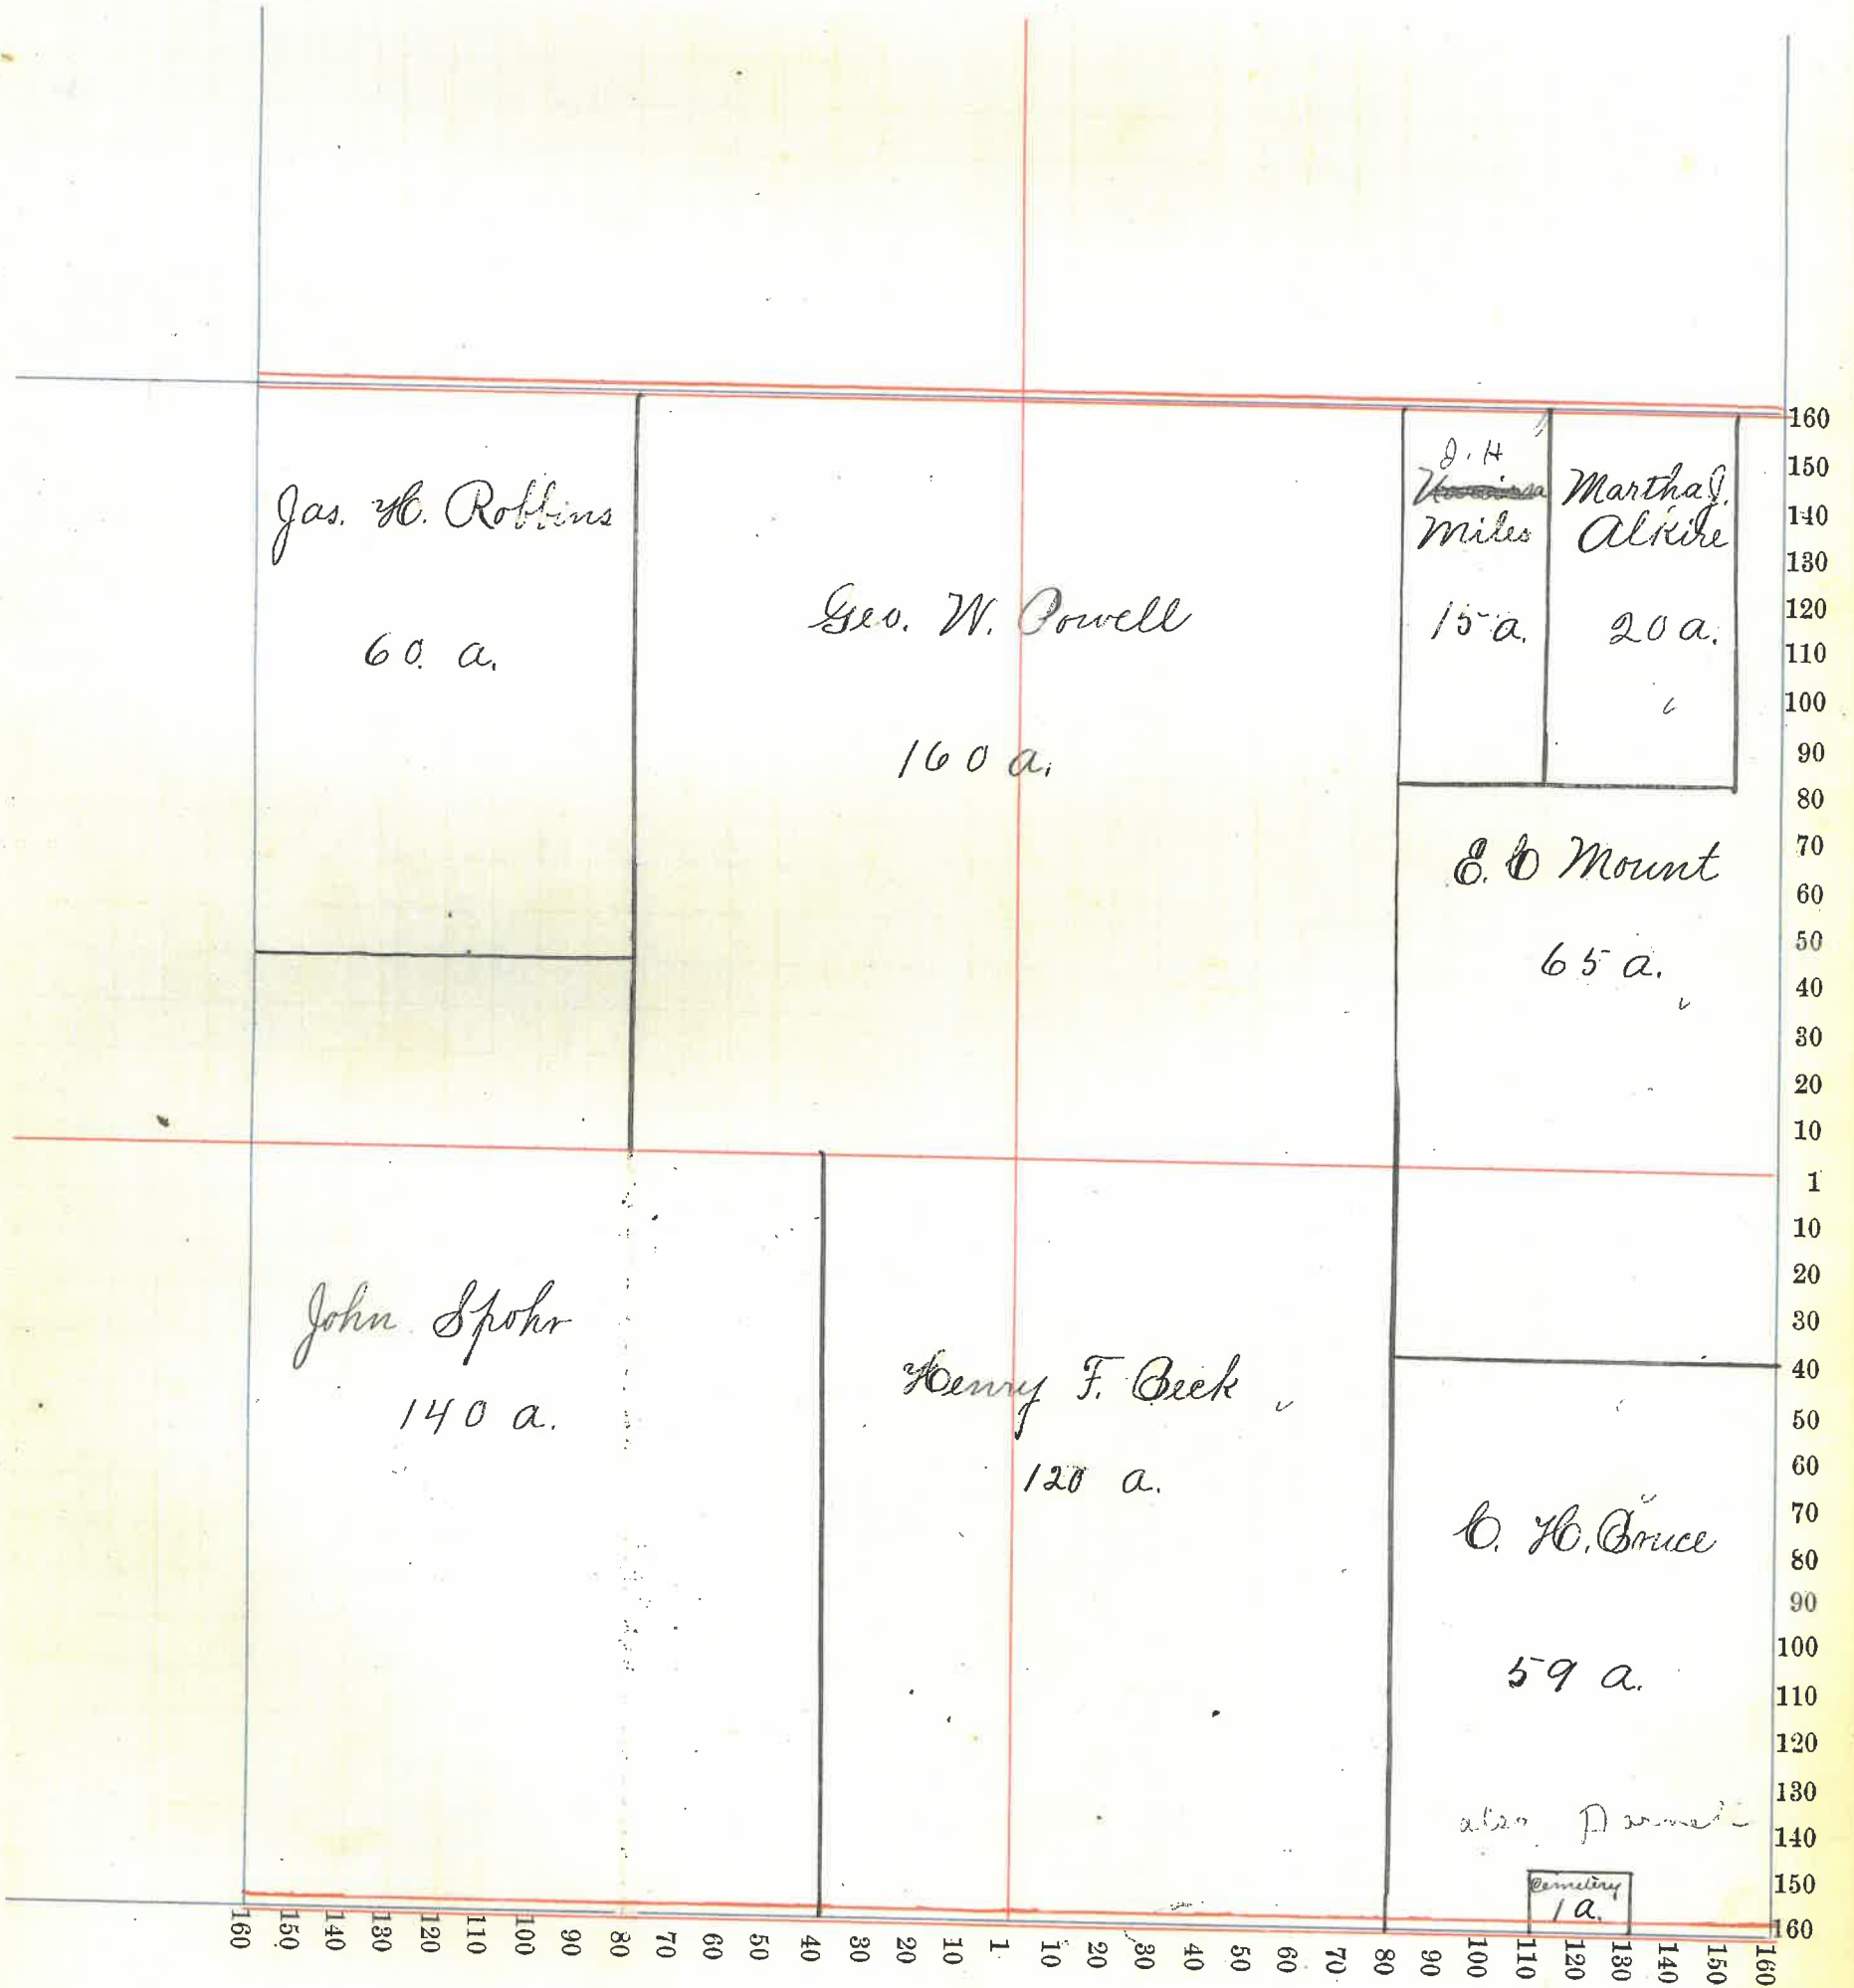 Jas. H. Robbins
60. a.
Geo. W. Powell
160 a.
J. H
Miles
15 a.
Martha J.
Alkire
20 a.
E. C Mount
65 a.
John Spohr
140 a.
Henry F. Beck
120 a.
C. H. Bruce
59 a.
also
Cemetery
1 a.
160
150
140
130
120
110
100
90
80
70
60
50
40
30
20
10
1
10
20
30
40
50
60
70
80
90
100
110
120
130
140
150
160
160 150 140 130 120 110 100 90 80 70 60 50 40 30 20 10 1 10 20 30 40 50 60 70 80 90 100 110 120 130 140 150 160